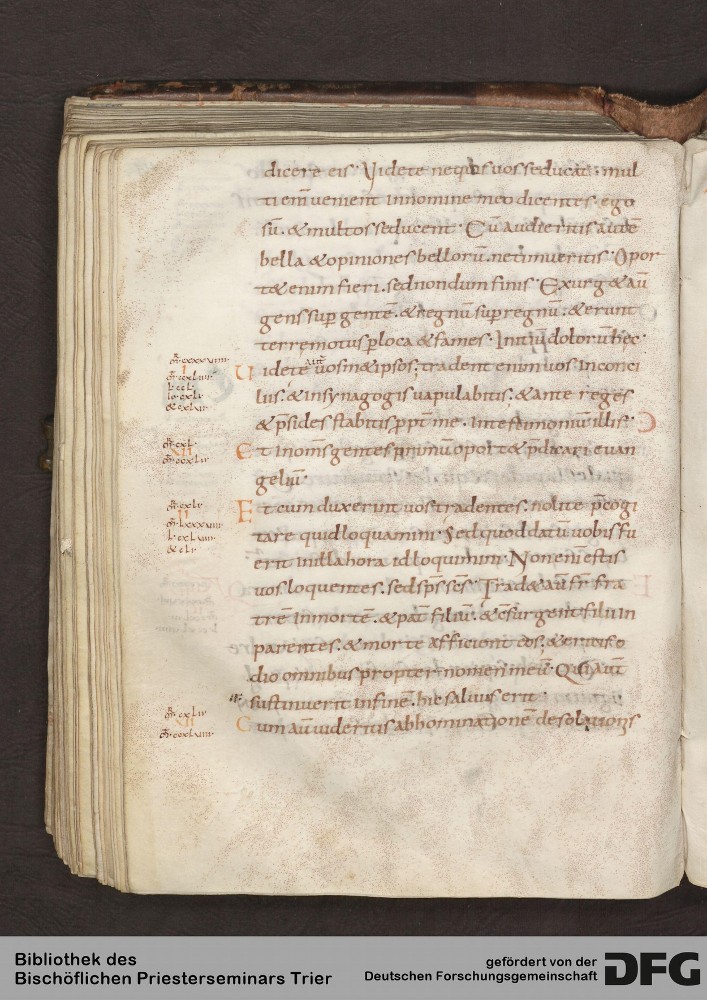 dicere eis Videte nequis vos seducat; mul
ti em̄ venient in nomine meo dicentes. ego
sū. & multos seducent. Cū audieritis autē
bella & opiniones bellorū. ne timueritis. Opor
t& enim fieri. sed nondum finis. Exurg& aū
gens sup gentē. & regnū sup regnū. & erunt
terremotus p loca & fames. Initiū dolorū hec.
Uidete aūt uosm&ipsos; tradent enim vos in conci
liis. & in synagogis vapulabitis. & ante reges
& p̄sides stabitis ppt̄ me. in testimonium illis.
Et in om̄s gentes primū oport& p̄dicari evan
gelīū.
Et cum duxerint vos tradentes. nolite p̄cogi
tare quid loquamini. Sed quod datū vobis fu
erit in illa hora id loquimini. Non enī estis
vos loquentes. sed sp̄s sc̄s. Trad& aūt fr̄ fra
trē in mortē. & pat̄ filiū. & c̄surgent filii in
parentes. & morte afficient eos. & eritis o
dio omnibus propter nomen meū. Qui aūt
sustinuerit in finē. hic salvus erit.
Cum aūt videritis abhominationē desolationis
Bibliothek des
Bischöflichen Priesterseminars Trier
gefördert von der
Deutschen Forschungsgemeinschaft
DFG